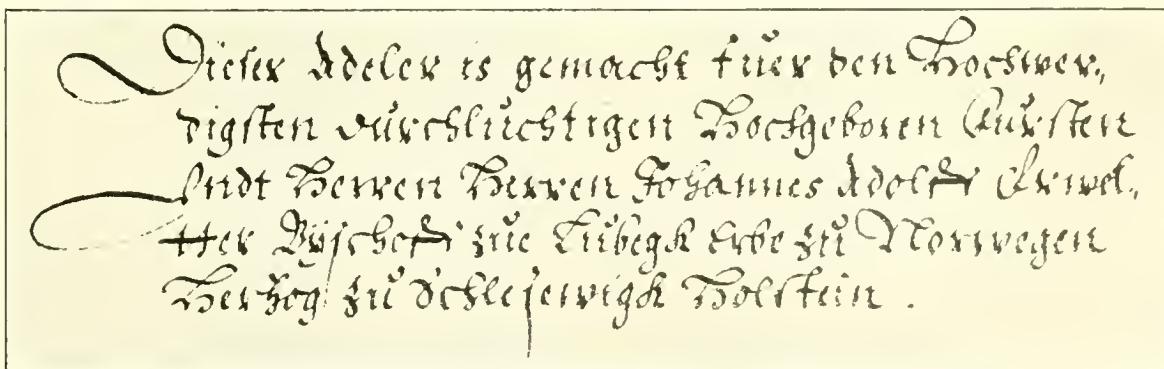 Dieser Adeler is gemacht fuer den Hochwer„
digsten dürchlüchtigen Hochgeboren Fürsten
Undt Herren Herren Johannes Adolff Erwel„
tter Byschoff züe Lübegk Erbe zü Norwegen
Herzog zü Schlejewigk Holstein.